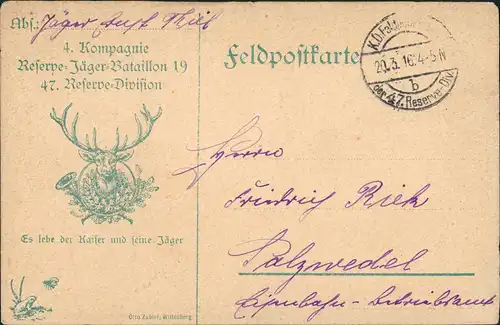 Abs: Jäger
4. Kompagnie
Reserve-Jäger-Bataillon 19
47. Reserve-Division
Feldpostkarte
20.3.16. 4-5 N
b
der 47. Reserve-Div.
Es lebe der Kaiser und seine Jäger
Herrn
Friedrich Riek
Salzwedel
Eisenbahn-Betriebsamt
Otto Zabler, Wittenberg